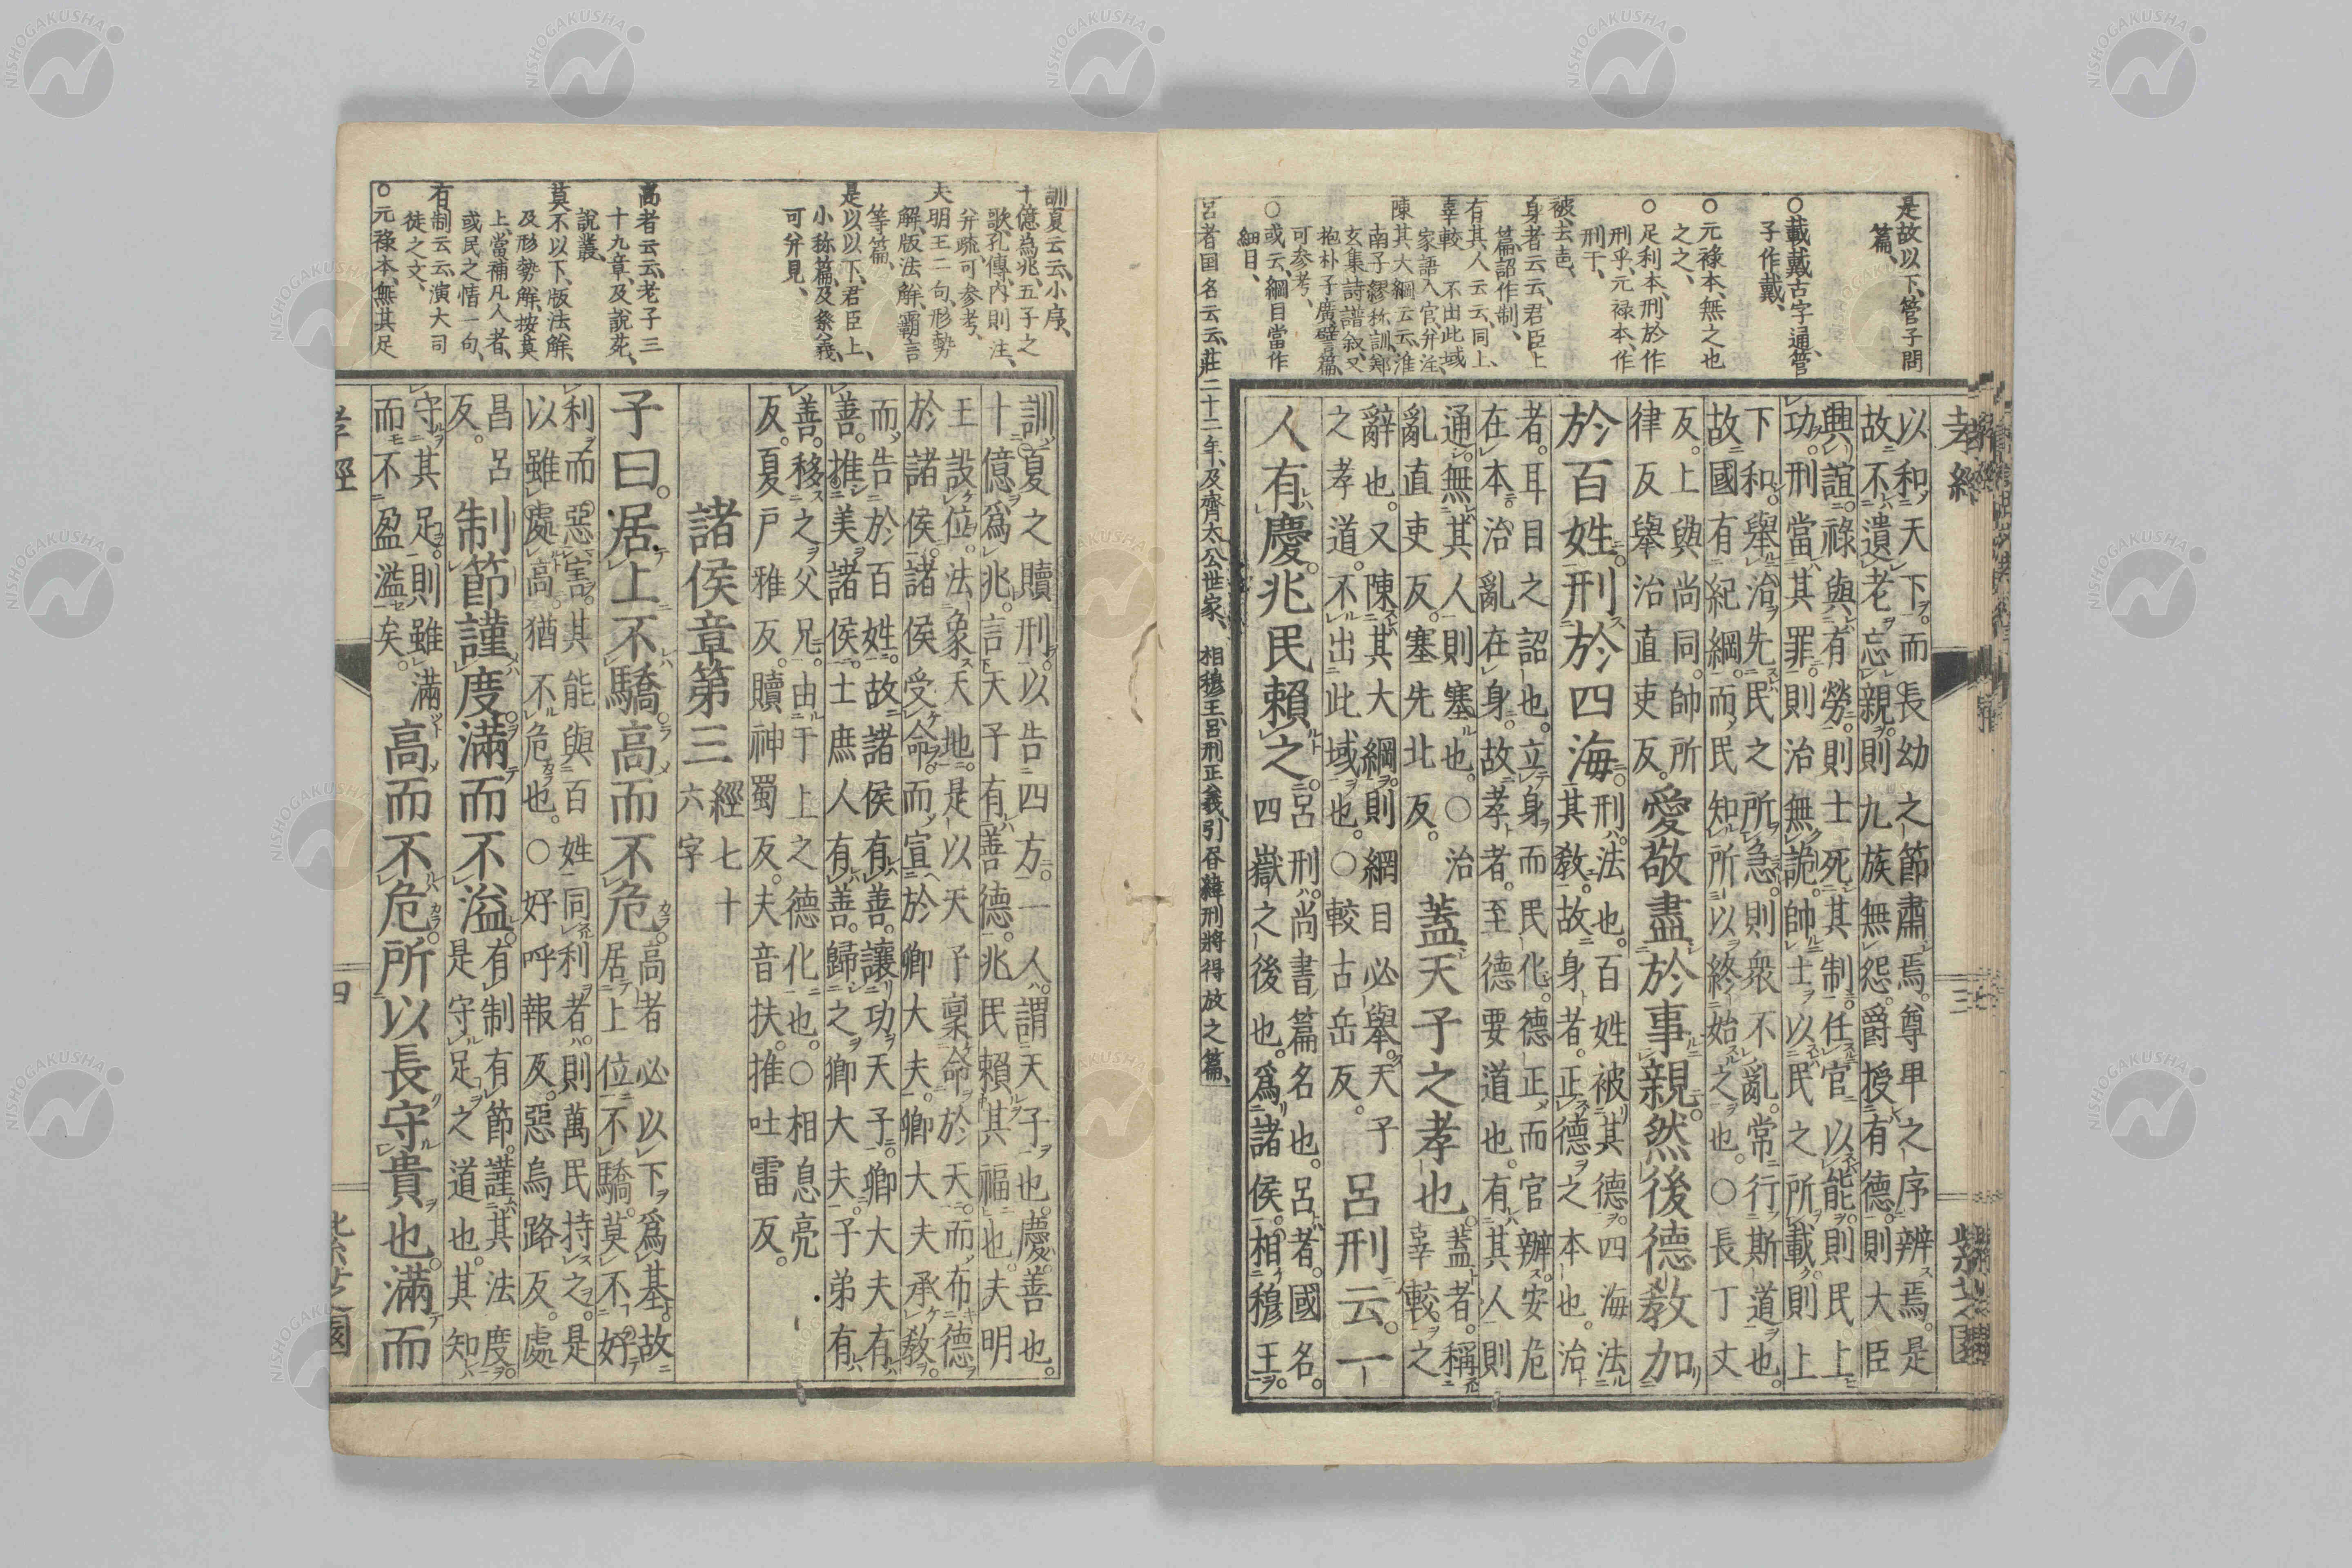 是故以下、管子問
篇、
○載戴古字通、管
子作戴、
○元祿本、無之也
之之、
○足利本、刑於作
刑乎、元禄本、作
刑于、
被、去声、
身者云云、君臣上
篇、詔作制、
有其人云云、同上、
辜較 不由此域
家語入官、并注
陳其大綱云云、淮
南子繆称訓、鄭
玄集詩譜叙、又
抱朴子廣譬篇、
可参考、
○或云、綱目當作
細目、
呂者国名云云、莊二十二年、及齊太公世家、 相穆王、呂刑正義引
以和天下。而長幼之節肅焉。尊卑之序辨焉。是
故不遺老忘親。則九族無怨。爵授有德。則大臣
興誼。祿與有勞。則士死其制。任官以能。則民上
功。刑當其罪。則治無詭。帥士以民之所載。則上
下和。舉治先民之所急。則衆不亂。常行斯道也。
故國有紀綱。而民知所以終始之也。○長丁丈
反。上與尚同。帥所
律反。舉治直吏反。
愛敬盡於事親。然後德教加
於百姓。刑於四海。
刑法也。百姓被其德。四海法
其教。故身者。正德之本也。治
者。耳目之詔也。立身而民化。德正而官辨。安危
在本。治亂在身。故孝者。至德要道也。有其人則
通。無其人則塞也。○治
亂直吏反。塞先北反。
蓋天子之孝也。
蓋者。稱
辜較之
辭也。又陳其大綱。則綱目必舉。天子
之孝道。不出此域也。○較古岳反。
呂刑云。一
人有慶。兆民賴之。
呂刑。尚書篇名也。呂者。國名。
四嶽之後也。爲諸侯。相穆王。
孝經
三
訓夏云云、小序、
十億為兆、五子之
歌、孔傳、内則注、
并疏、可参考、
夫明王二句、形勢
解、版法解、霸言
等篇、
是以以下、君臣上、
小称篇、及祭義、
可并見、
高者云云、老子三
十九章、及說苑、
說叢、
莫不以下、版法解、
及形勢解、按莫
上、當補凡人者、
或民之情一句、
有制云云、演大司
徒之文、
○元祿本、無其足
訓夏之贖刑。以告四方。一人。謂天子也。慶。善也。
十億爲兆。言天子有善德。兆民賴其福也。夫明
王設位。法象天地。是以天子稟命於天。而布德
於諸侯。諸侯受命。而宣於卿大夫。卿大夫承教。
而告於百姓。故諸侯有善。讓功天子。卿大夫有
善。推美諸侯。士庶人有善。歸之卿大夫。子弟有
善。移之父兄。由于上之德化也。○相息亮
反。夏戶雅反。贖神蜀反。夫音扶。推吐雷反。
諸侯章第三
經七十
六字
子曰。居上不驕。高而不危。
高者必以下爲基。故
居上位不驕。莫不好
利而惡害。其能與百姓同利者。則萬民持之。是
以雖處高。猶不危也。○好呼報反。惡烏路反。處
昌呂
反。
制節謹度。滿而不溢。
有制有節。謹其法度。
是守足之道也。其知
守其足。則雖滿
而不盈溢矣。
高而不危。所以長守貴也。滿而
孝經
四
紫芝園